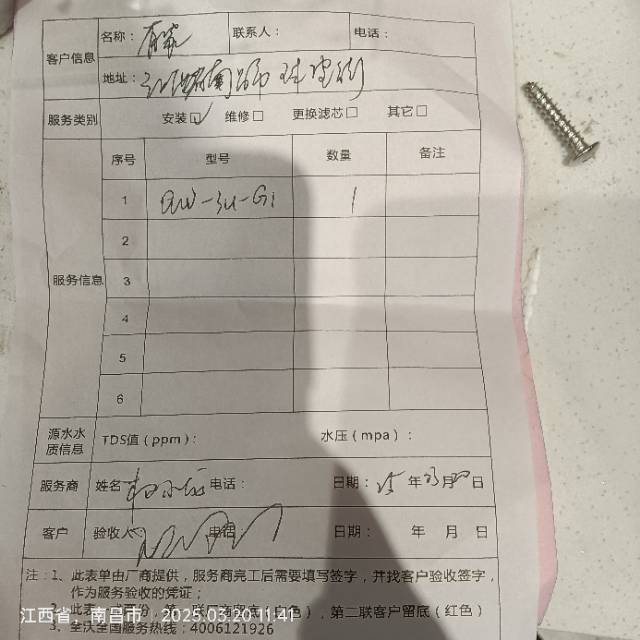 名称： 联系人： 电话：
客户信息
地址：
服务类别 安装☑ 维修□ 更换滤芯□ 其它□
序号 型号 数量 备注
1 1
2
服务信息 3
4
5
6
源水水质信息 TDS值（ppm）： 水压（mpa）：
服务商 姓名 电话： 日期：25年03月20日
客户 验收人 电话 日期： 年 月 日
注：1、此表单由厂商提供，服务商完工后需要填写签字，并找客户验收签字，
作为服务验收的凭证；
2、此表 ，第一联 （ 色），第二联客户留底（红色）
3、全沃全国服务热线：4006121926
江西省，南昌市 2025.03.20 11:41